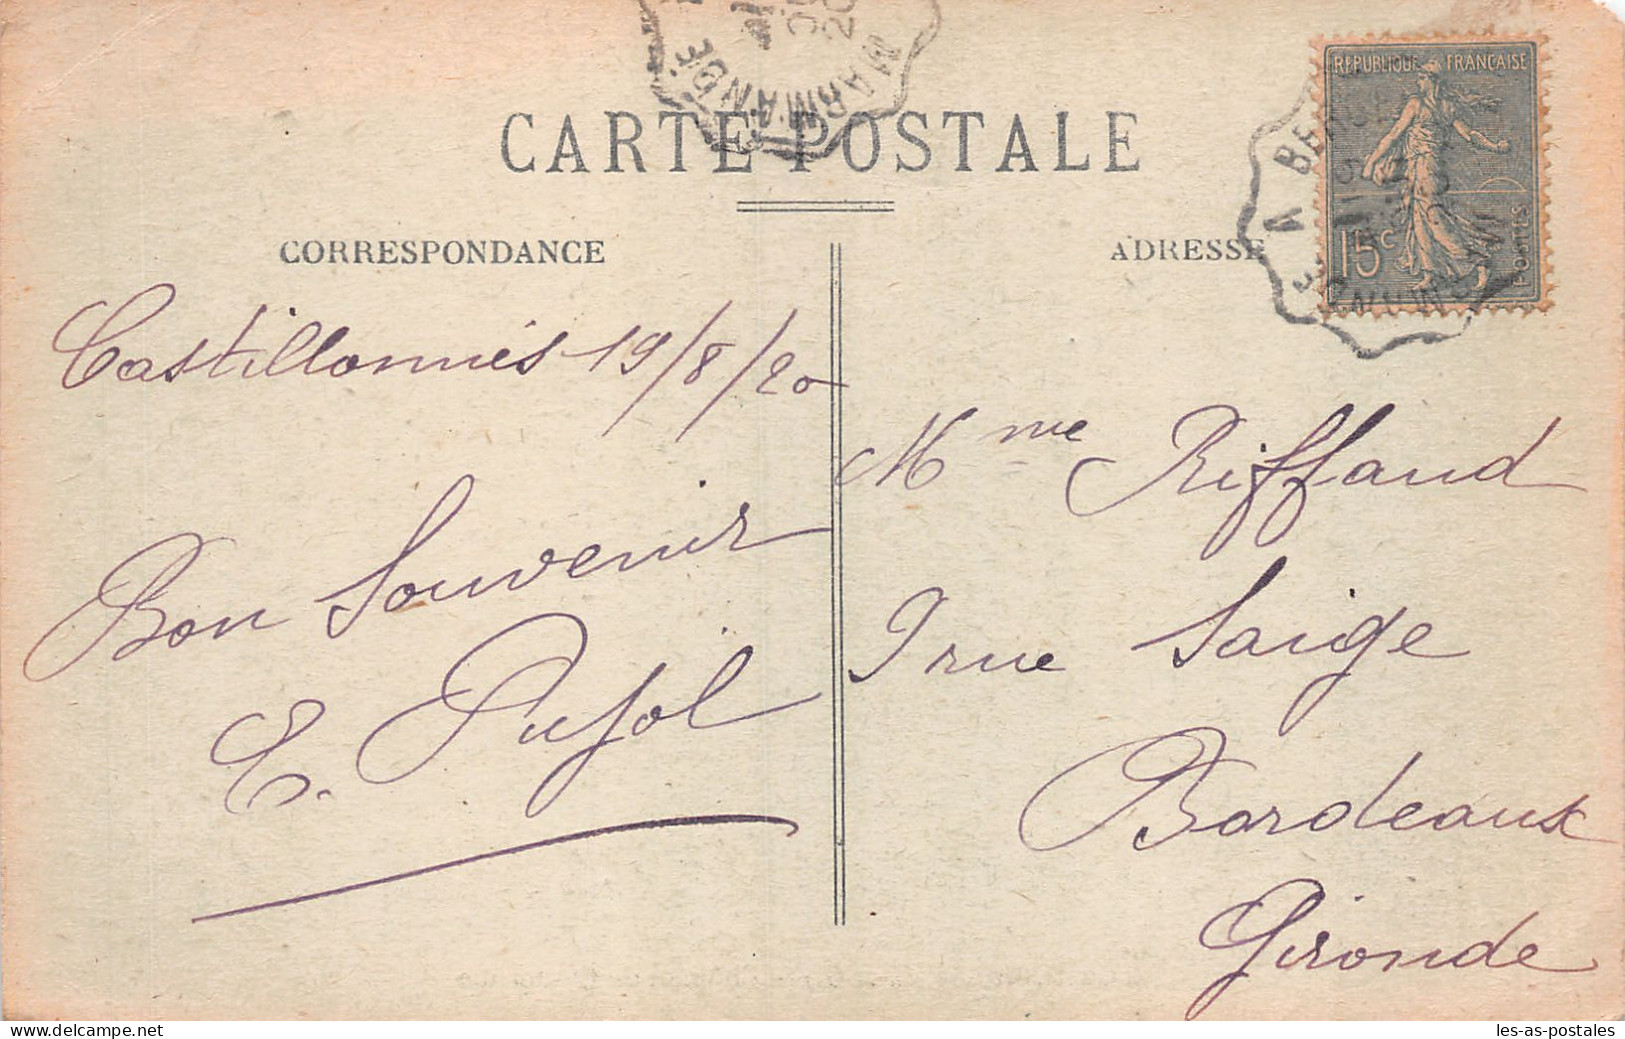 MARMANDE
CARTE POSTALE
RÉPUBLIQUE FRANÇAISE
15c
POSTES
CORRESPONDANCE
ADRESSE
Castillonnès 19/8/20
Bon Souvenir
E. Pujol
Mme Riffaud
9 rue Saige
Bordeaux
Gironde
delcampe.net
les-as-postales